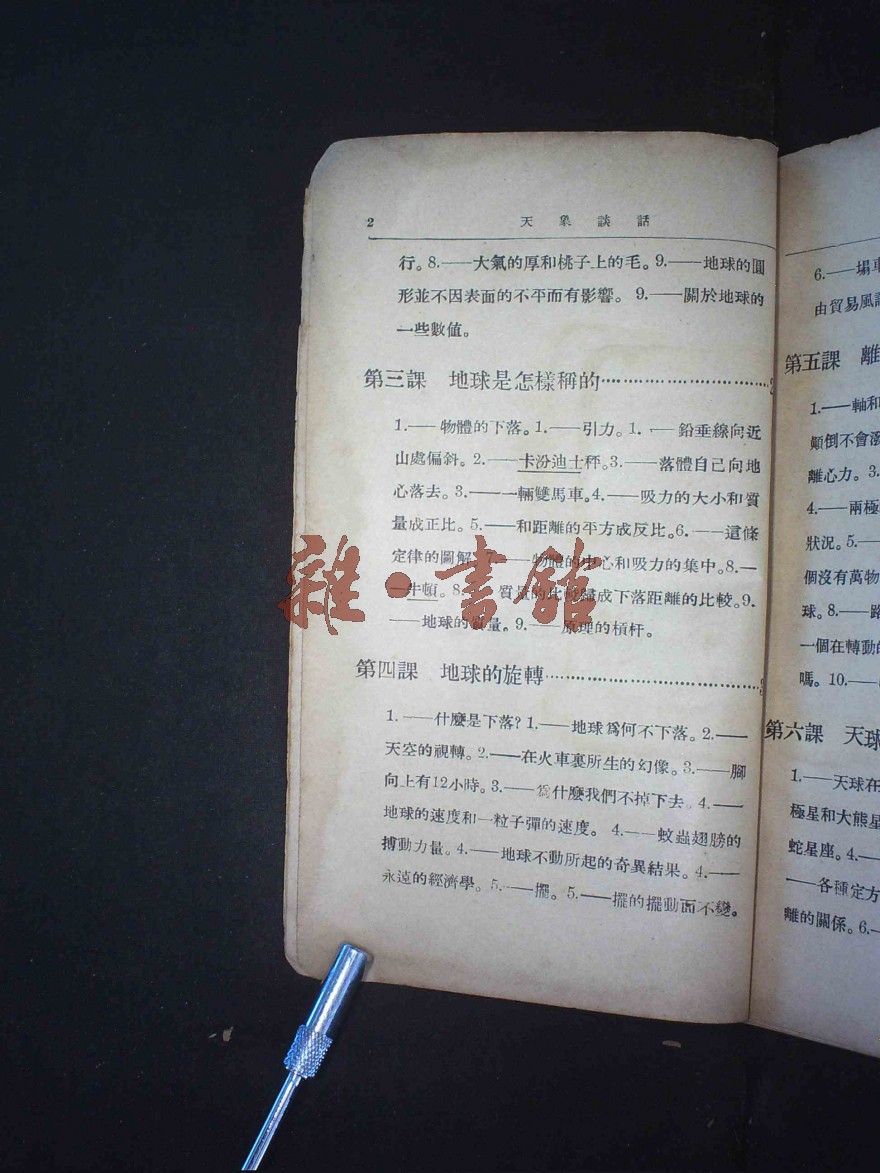 2 天象談話
行。8.——大氣的厚和桃子上的毛。9.——地球的圓
形並不因表面的不平而有影響。9.——關於地球的
一些數值。
第三課 地球是怎樣稱的
1.——物體的下落。1.——引力。1.——鉛垂線向近
山處偏斜。2.——卡汾迪士秤。3.——落體自己向地
心落去。3.——一輛雙馬車。4.——吸力的大小和質
量成正比。5.——和距離的平方成反比。6.——這條
定律的圖解 ——物體的中心和吸力的集中。8.—
—牛頓。8. 質量的比較 成下落距離的比較。9.
——地球的質量。9.——原理的槓杆。
第四課 地球的旋轉
1.——什麼是下落?1.——地球爲何不下落。2.——
天空的視轉。2.——在火車裏所生的幻像。3.——腳
向上有12小時。3.——爲什麼我們不掉下去。4.——
地球的速度和一粒子彈的速度。4.——蚊蟲翅膀的
搏動力量。4.——地球不動所起的奇異結果。4.——
永遠的經濟學。5.——擺。5.——擺的擺動面不變。
6.——塲車
由貿易風
第五課 離
1.——軸和
顚倒不會
離心力。3.
4.——兩極
狀况。5.—
個沒有萬物
球。8.——路
一個在轉動的
嗎。10.——
第六課 天球
1.——天球在
極星和大熊星
蛇星座。4.——
——各種定方
離的關係。6.—
雜·書館